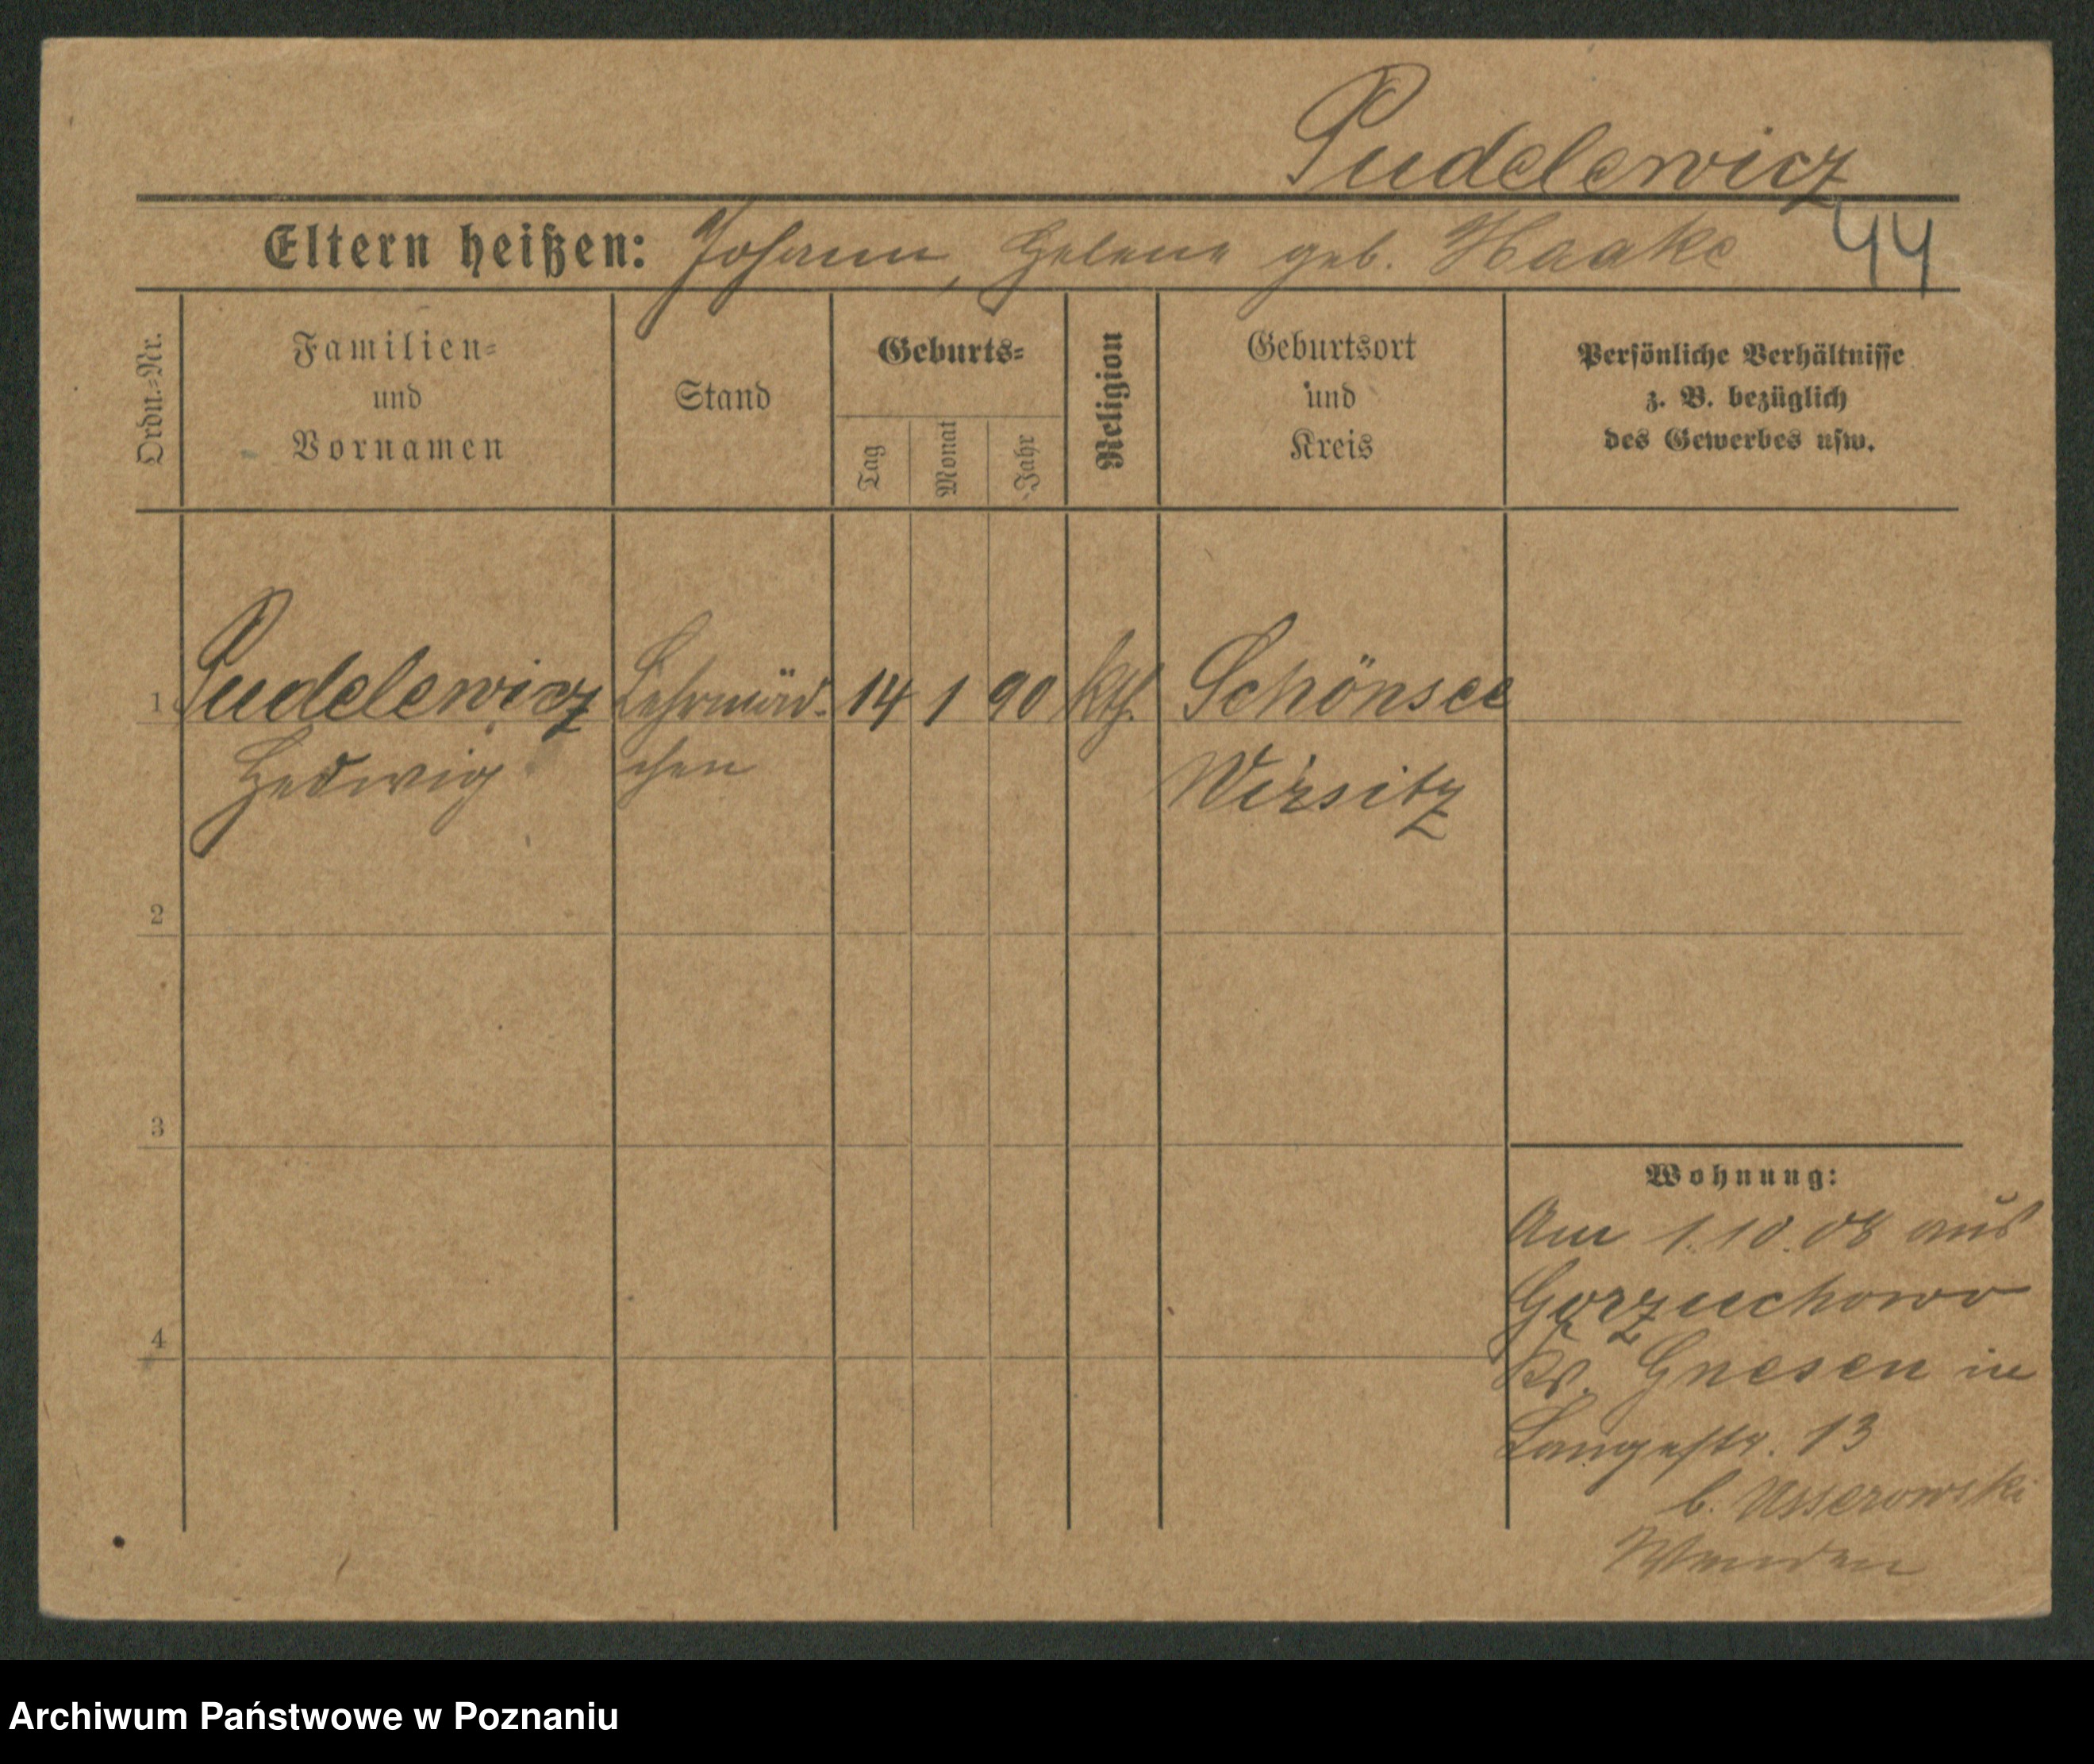 Pudelewicz
44
Eltern heißen: Johann, Helene geb. Haake
Ordn.-Nr.
Familien-
und
Vornamen
Stand
Geburts-
Tag
Monat
Jahr
Religion
Geburtsort
und
Kreis
Persönliche Verhältnisse
z. B. bezüglich
des Gewerbes usw.
1 Pudelewicz Lehrmäd- 14 1 90 kth. Schönsee
Hedwig chen Wirsitz
2
3
4
Wohnung:
Am 1.10.08 aus
Gorzuchowo
Kr. Gnesen in
Langestr. 13
b.
Wenden
Archiwum Państwowe w Poznaniu